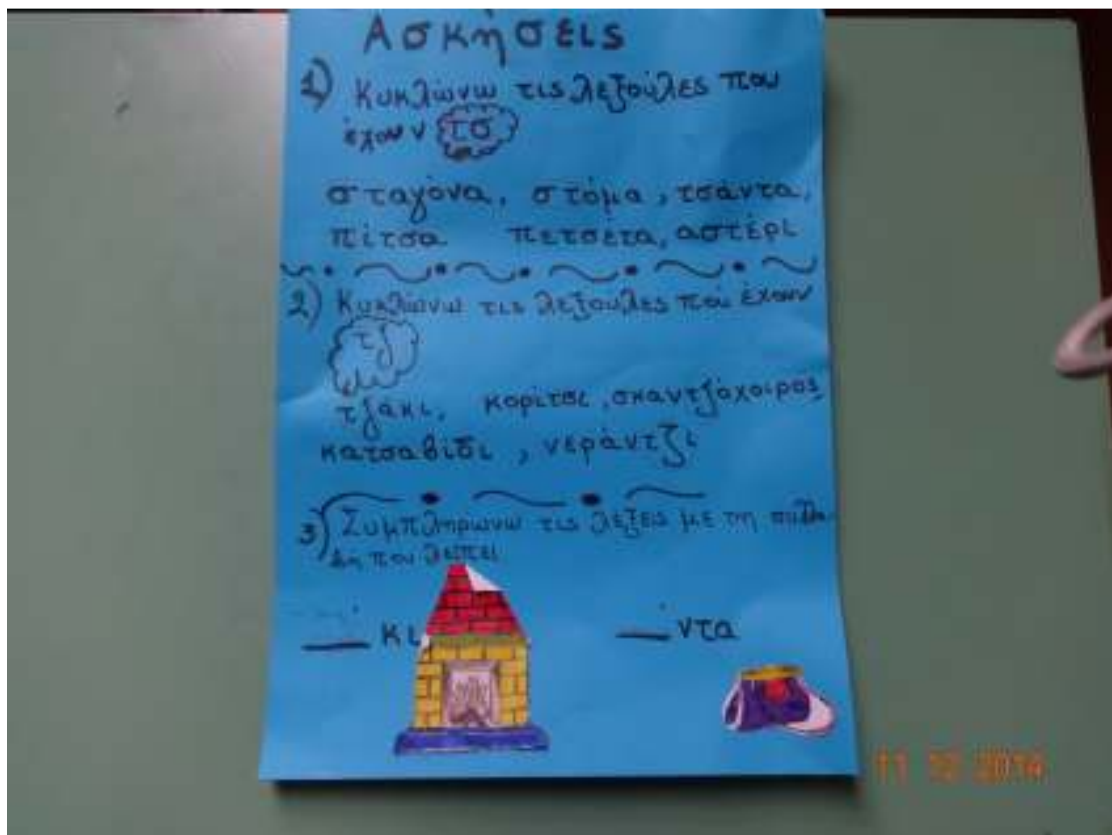 Ασκήσεις
1) Κυκλώνω τις λεξούλες που
έχουν τσ
σταγόνα, στόμα, τσάντα,
πίτσα πετσέτα, αστέρι
2) Κυκλώνω τις λεξούλες που έχουν
τζ
τζάκι, κορίτσι, σκαντζόχοιρος,
κατσαβίδι, νεράντζι
3) Συμπληρωνω τις λέξεις με τη συλλα-
βη που λειπει
___κι ___ντα
11 12 2014